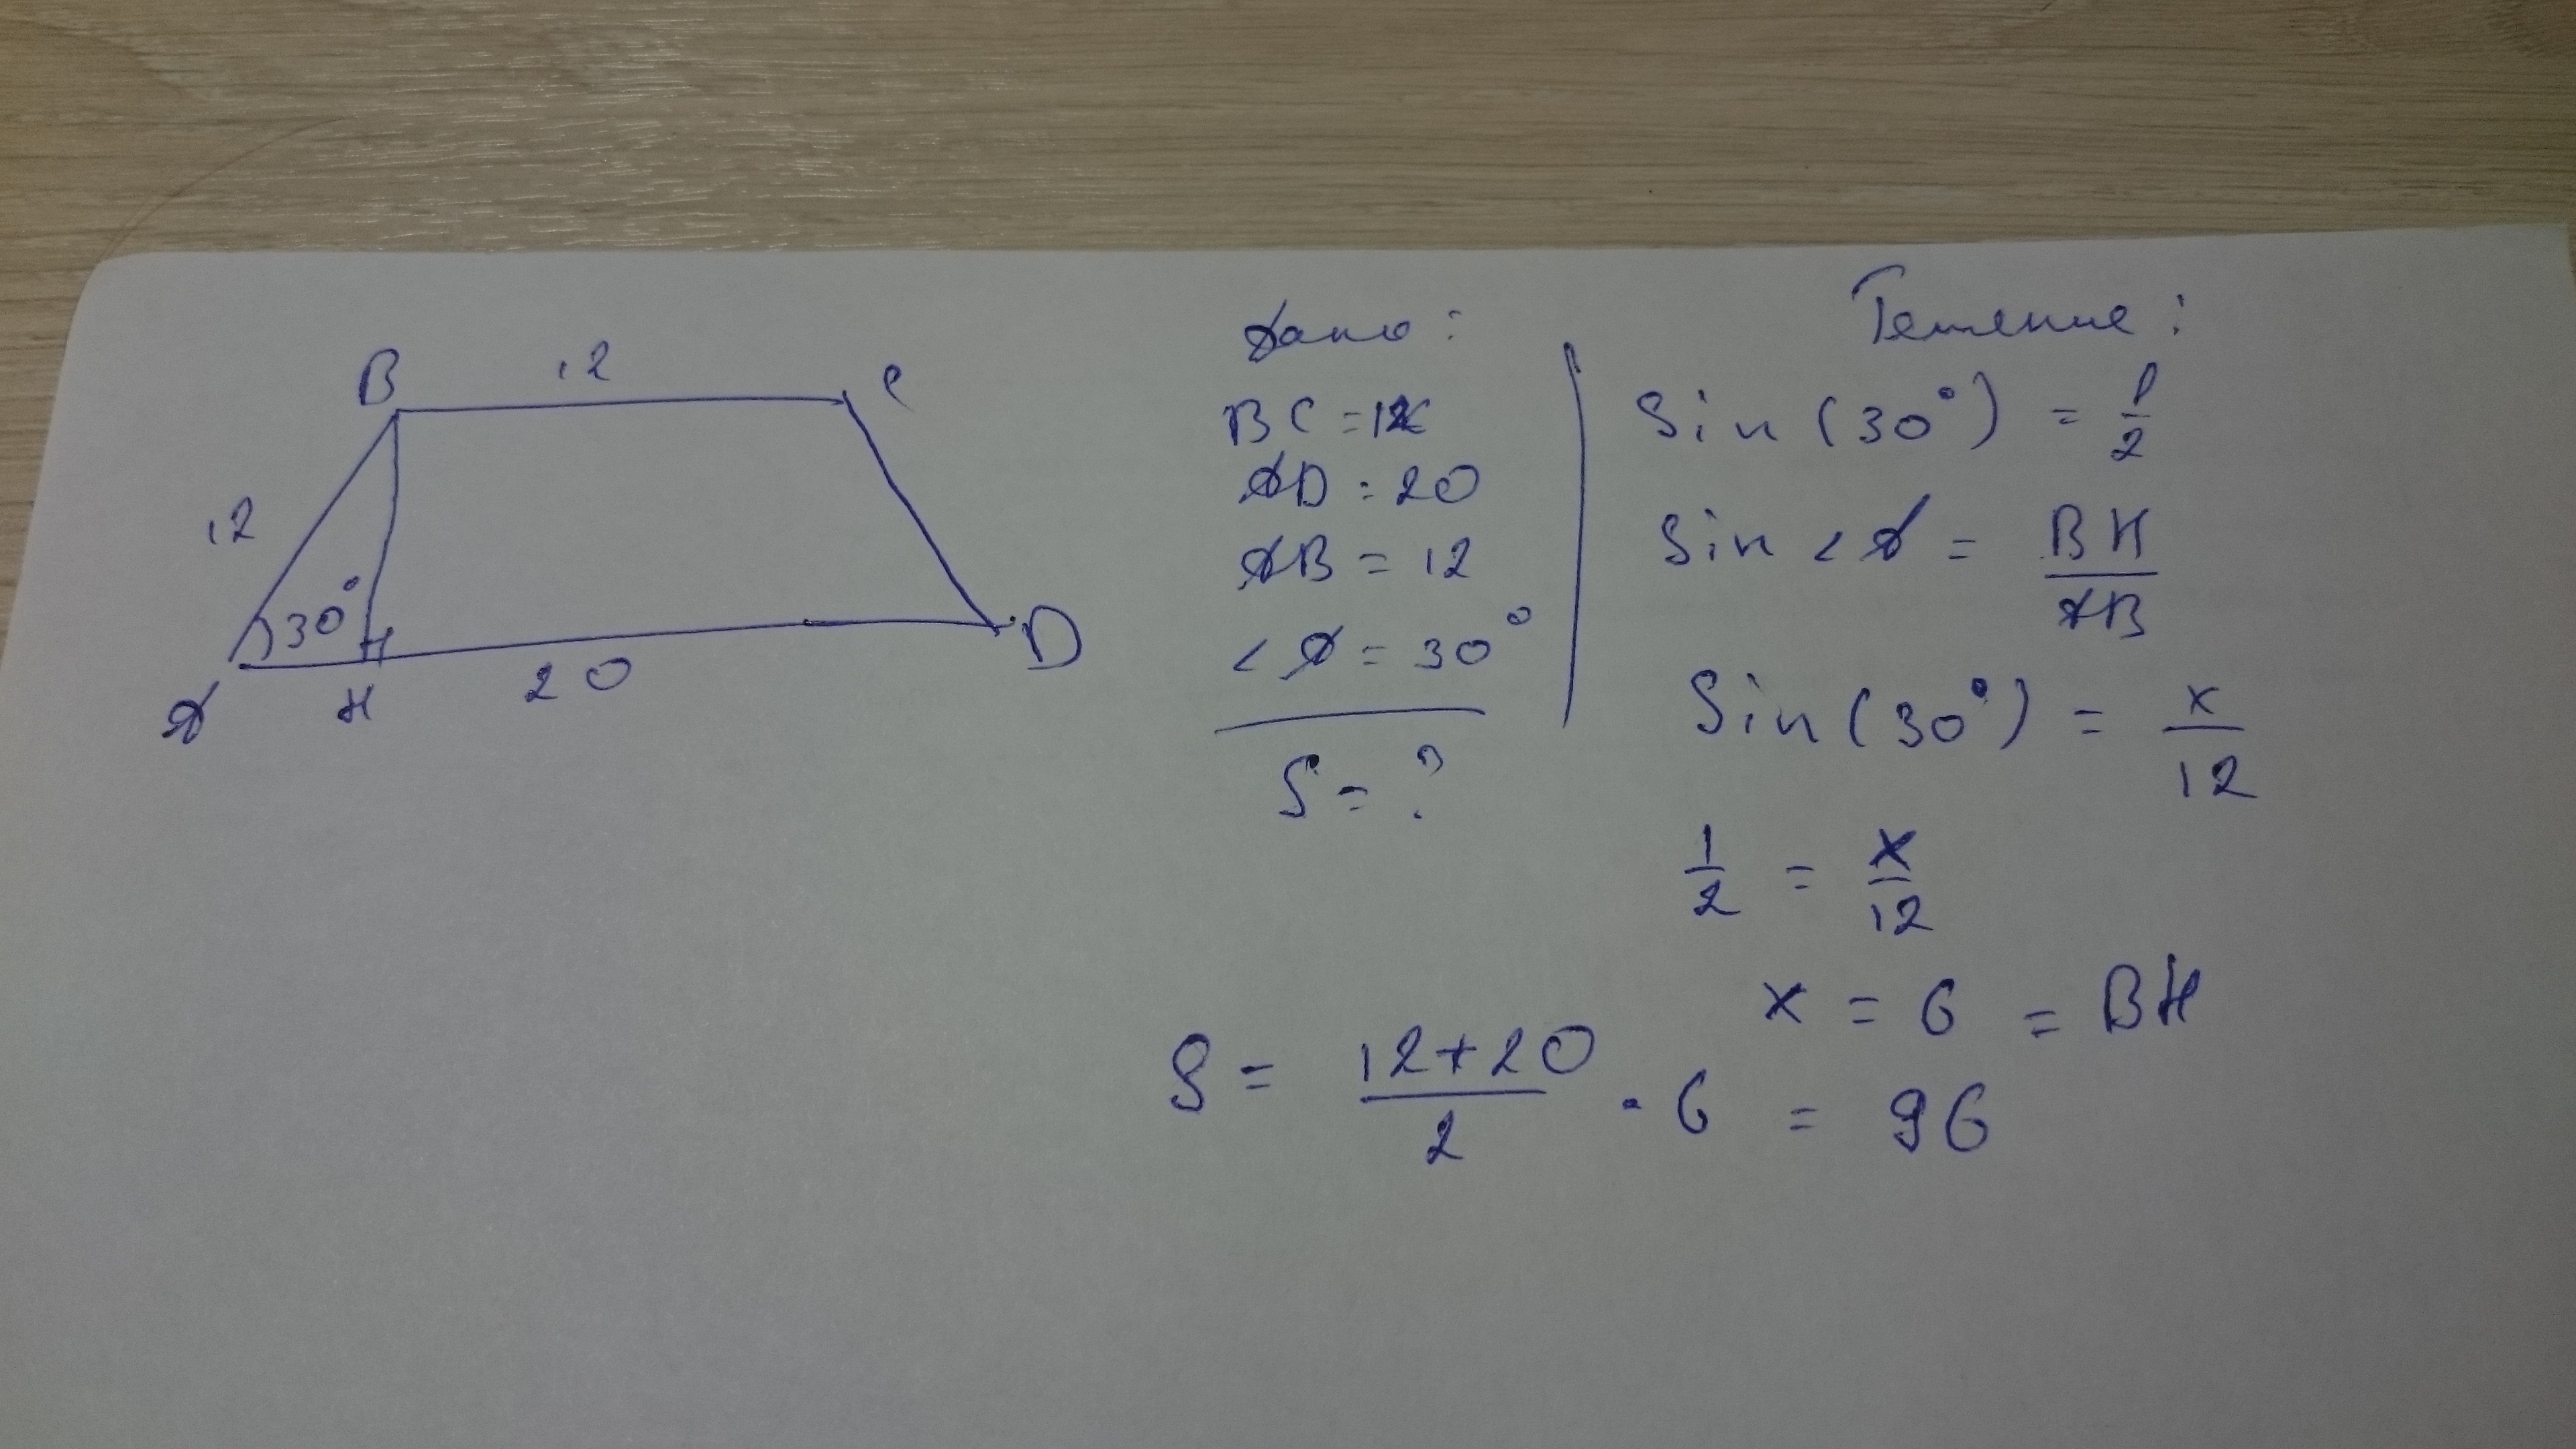 B 12 C
12
30°
A H 20 D
Дано:
BC = 12
AD = 20
AB = 12
<A = 30°
S = ?
Решение:
Sin (30°) = 1/2
Sin <A = BH/AB
Sin (30°) = x/12
1/2 = x/12
x = 6 = BH
S = 12+20/2 · 6 = 96